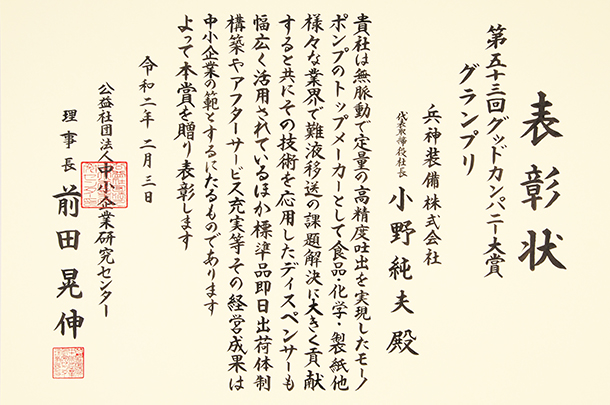 表彰状
第五十三回グッドカンパニー大賞
グランプリ
兵神装備株式会社
代表取締役社長 小野純夫 殿
貴社は無脈動で定量の高精度吐出を実現したモーノ
ポンプのトップメーカーとして食品・化学・製紙他
様々な業界で難液移送の課題解決に大きく貢献
すると共にその技術を応用したディスペンサーも
幅広く活用されているほか標準品即日出荷体制
構築やアフターサービス充実等その経営成果は
中小企業の範とするにたるものであります
よって本賞を贈り表彰します
令和二年二月三日
公益社団法人中小企業研究センター
理事長 前田晃伸